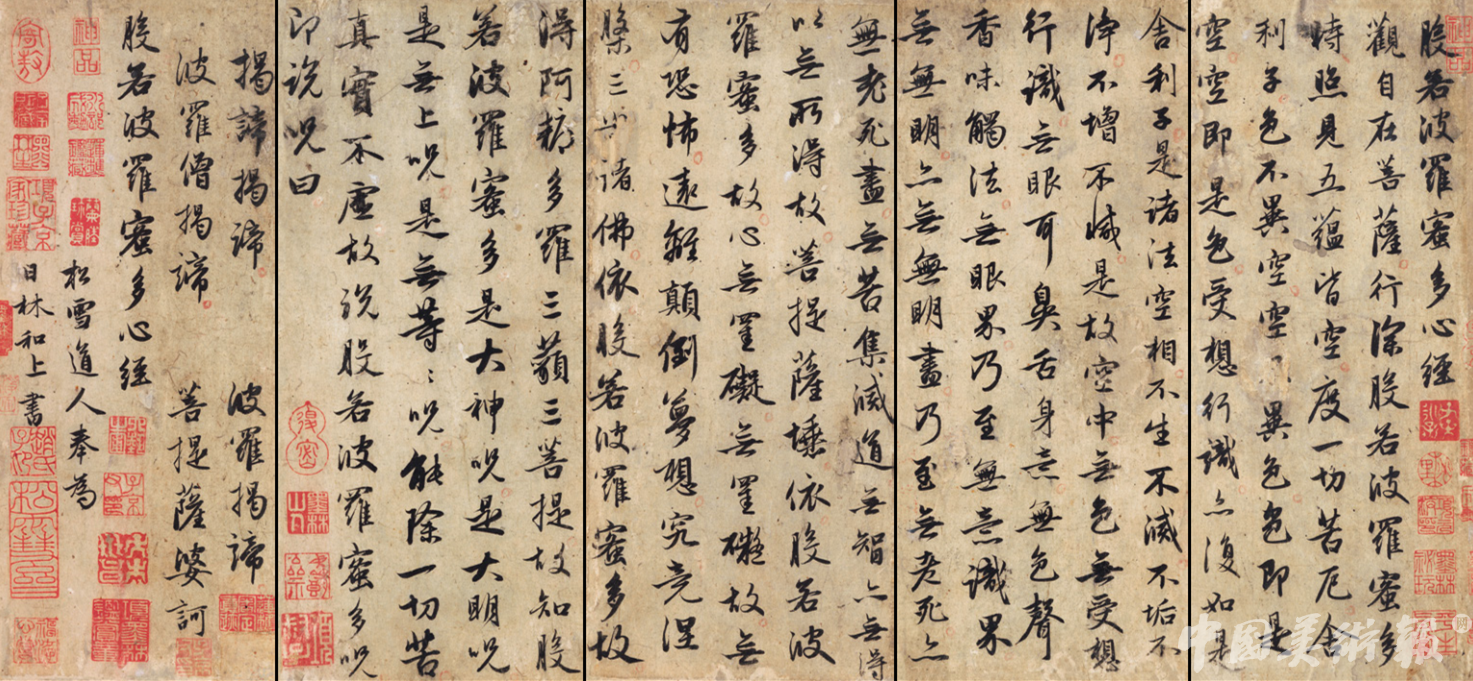 般若波羅蜜多心經
觀自在菩薩行深般若波羅蜜多
時照見五蘊皆空度一切苦厄舍
利子色不異空空不異色色即是
空空即是色受想行識亦復如是
舍利子是諸法空相不生不滅不垢不
淨不增不減是故空中無色無受想
行識無眼耳鼻舌身意無色聲
香味觸法無眼界乃至無意識界
無無明亦無無明盡乃至無老死亦
無老死盡無苦集滅道無智亦無得
以無所得故菩提薩埵依般若波
羅蜜多故心無罣礙無罣礙故無
有恐怖遠離顛倒夢想究竟涅
槃三世諸佛依般若波羅蜜多故
得阿耨多羅三藐三菩提故知般
若波羅蜜多是大神咒是大明咒
是無上咒是無等〻咒能除一切苦
真實不虛故說般若波羅蜜多咒
即說咒曰
揭諦揭諦 波羅揭諦
波羅僧揭諦 菩提薩婆訶
般若波羅蜜多心經
松雪道人奉為
日林和上書
神品
項子京家珍藏
中国美術報网